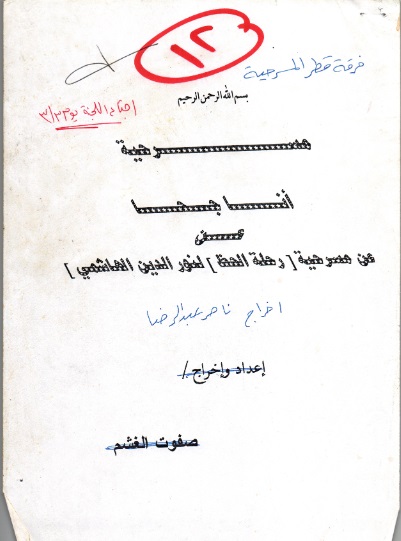 ١٢
فرقة قطر المسرحية
بسم الله الرحمن الرحيم
اجتماع اللجنة يوم ٣/٢٣
مســـــــــرحية
أنـــــا جـــحـــا
عــــن
عن مسرحية [ رحلة الحظ ] لنور الدين الهاشمي ]
اخراج ناصر عبدالرضا
إعداد وإخراج /
صفوت الغشم